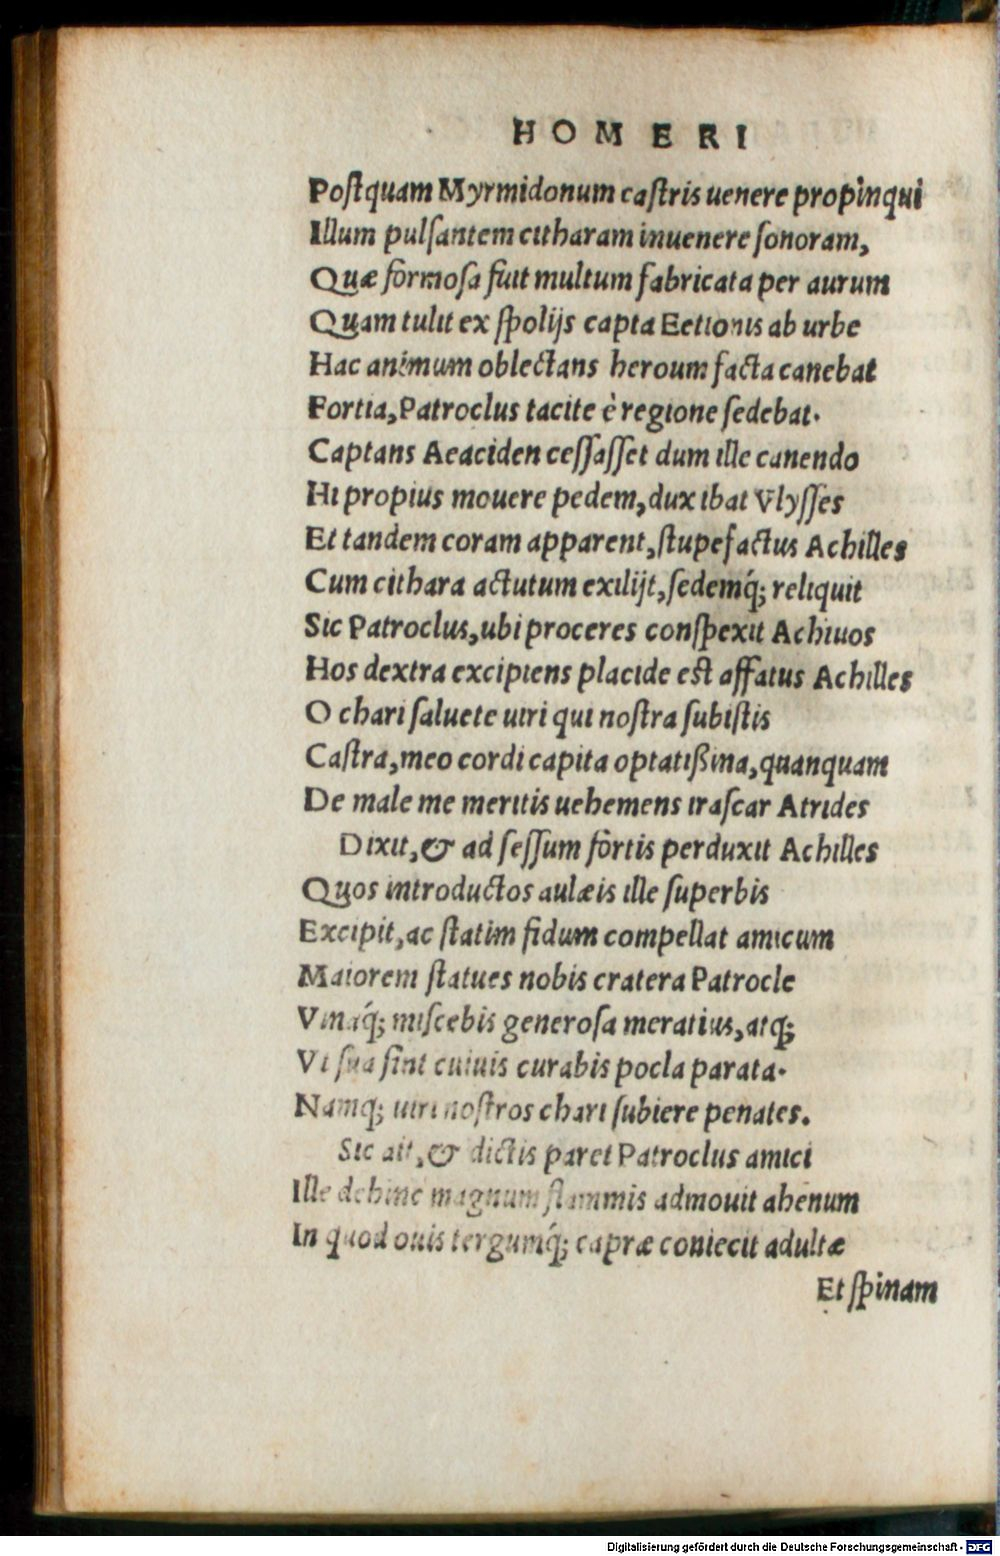 HOMERI
Postquam Myrmidonum castris uenere propinqui
Illum pulsantem citharam inuenere sonoram,
Quæ formosa fuit multum fabricata per aurum
Quam tulit ex spolijs capta Eetionis ab urbe
Hac animum oblectans heroum facta canebat
Fortia, Patroclus tacite è regione sedebat.
Captans Aeaciden cessasset dum ille canendo
Hi propius mouere pedem, dux ibat Vlysses
Et tandem coram apparent, stupefactus Achilles
Cum cithara actutum exilijt, sedemq́; reliquit
Sic Patroclus, ubi proceres conspexit Achiuos
Hos dextra excipiens placide est affatus Achilles
O chari saluete uiri qui nostra subistis
Castra, meo cordi capita optatißima, quanquam
De male me meritis uehemens irascar Atrides
Dixit, & ad sessum fortis perduxit Achilles
Quos introductos aulæis ille superbis
Excipit, ac statim fidum compellat amicum
Maiorem statues nobis cratera Patrocle
Vinaq́; miscebis generosa meratius, atq;
Vt sua sint cuiuis curabis pocla parata.
Namq; uiri nostros chari subiere penates.
Sic ait, & dictis paret Patroclus amici
Ille dehinc magnum flammis admouit ahenum
In quod ouis tergumq́; capræ coniecit adultæ
Et spinam
Digitalisierung gefördert durch die Deutsche Forschungsgemeinschaft - DFG